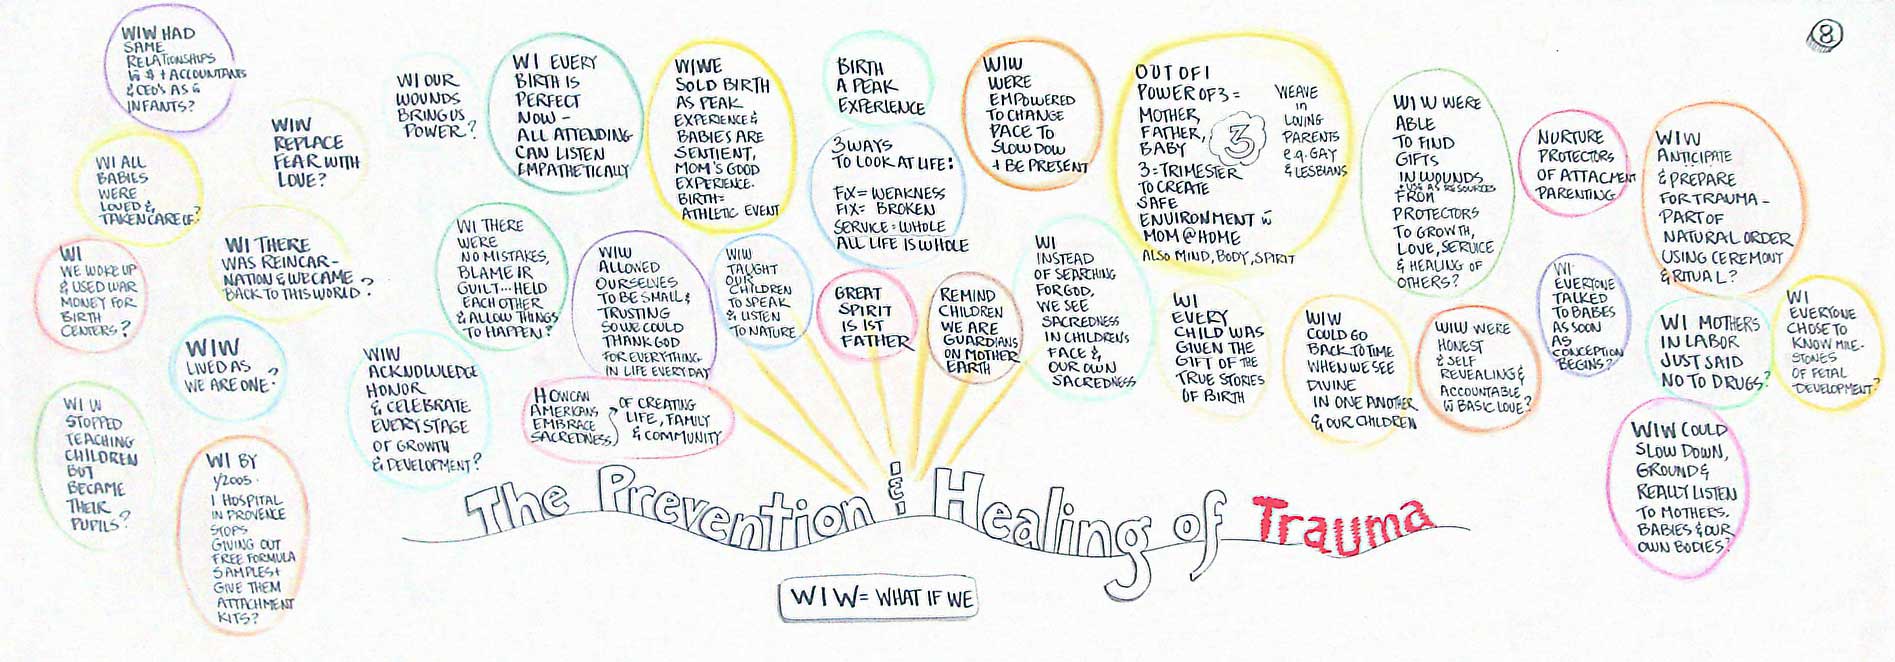 8
WIW HAD
SAME
RELATIONSHIPS
W $ + ACCOUNTANTS
& CEO'S AS
INFANTS?
WI ALL
BABIES
WERE
LOVED &
TAKEN CARE OF?
WIW
REPLACE
FEAR WITH
LOVE?
WI
WE WOKE UP
& USED WAR
MONEY FOR
BIRTH
CENTERS?
WI THERE
WAS REINCAR-
NATION & WE CAME
BACK TO THIS WORLD?
WIW
LIVED AS
WE ARE ONE?
WI W
STOPPED
TEACHING
CHILDREN
BUT
BECAME
THEIR
PUPILS?
WI BY
Y/2005.
1 HOSPITAL
IN PROVENCE
STOPS
GIVING OUT
FREE FORMULA
SAMPLES +
GIVE THEM
ATTACHMENT
KITS?
WI OUR
WOUNDS
BRING US
POWER?
WI EVERY
BIRTH IS
PERFECT
NOW –
ALL ATTENDING
CAN LISTEN
EMPATHETICALLY
WIWE
SOLD BIRTH
AS PEAK
EXPERIENCE &
BABIES ARE
SENTIENT,
MOM'S GOOD
EXPERIENCE.
BIRTH=
ATHLETIC EVENT
WI THERE
WERE
NO MISTAKES,
BLAME IR
GUILT...HELD
EACH OTHER
& ALLOW THINGS
TO HAPPEN?
WIW
ALLOWED
OURSELVES
TO BE SMALL &
TRUSTING
SO WE COULD
THANK GOD
FOR EVERYTHING
IN LIFE EVERYDAY
WIW
TAUGHT
OUR
CHILDREN
TO SPEAK
& LISTEN
TO NATURE
WIW
ACKNOWLEDGE
HONOR
& CELEBRATE
EVERY STAGE
OF GROWTH
& DEVELOPMENT?
HOW CAN
AMERICANS
EMBRACE
SACREDNESS
OF CREATING
LIFE, FAMILY
& COMMUNITY
BIRTH
A PEAK
EXPERIENCE
3 WAYS
TO LOOK AT LIFE:
FIX = WEAKNESS
FIX = BROKEN
SERVICE = WHOLE
ALL LIFE IS WHOLE
GREAT
SPIRIT
IS 1ST
FATHER
REMIND
CHILDREN
WE ARE
GUARDIANS
ON MOTHER
EARTH
WIW
WERE
EMPOWERED
TO CHANGE
PACE TO
SLOW DOW
+ BE PRESENT
WI
INSTEAD
OF SEARCHING
FOR GOD,
WE SEE
SACREDNESS
IN CHILDREN'S
FACE &
OUR OWN
SACREDNESS
OUT OF 1
POWER OF 3 =
MOTHER
FATHER,
BABY
3
3 = TRIMESTER
TO CREATE
SAFE
ENVIRONMENT W
MOM @ HOME
ALSO MIND, BODY, SPIRIT
WEAVE
IN
LOVING
PARENTS
e.g. GAY
& LESBIANS
WI
EVERY
CHILD WAS
GIVEN THE
GIFT OF THE
TRUE STORIES
OF BIRTH
WIW
COULD GO
BACK TO TIME
WHEN WE SEE
DIVINE
IN ONE ANOTHER
& OUR CHILDREN
WI W WERE
ABLE
TO FIND
GIFTS
IN WOUNDS
+ USE AS RESOURCES
FROM
PROTECTORS
TO GROWTH,
LOVE, SERVICE
& HEALING OF
OTHERS?
WIW WERE
HONEST
& SELF
REVEALING &
ACCOUNTABLE
W BASIC LOVE?
NURTURE
PROTECTORS
OF ATTACMENT
PARENTING
WI
EVERYONE
TALKED
TO BABES
AS SOON
AS
CONCEPTION
BEGINS?
WIW
ANTICIPATE
& PREPARE
FOR TRAUMA –
PART OF
NATURAL ORDER
USING CEREMONY
& RITUAL?
WI MOTHERS
IN LABOR
JUST SAID
NO TO DRUGS?
WI
EVERYONE
CHOSE TO
KNOW MILE-
STONES
OF FETAL
DEVELOPMENT?
WIW COULD
SLOW DOWN,
GROUND &
REALLY LISTEN
TO MOTHERS,
BABIES & OUR
OWN BODIES?
The Prevention & Healing of Trauma
WIW = WHAT IF WE